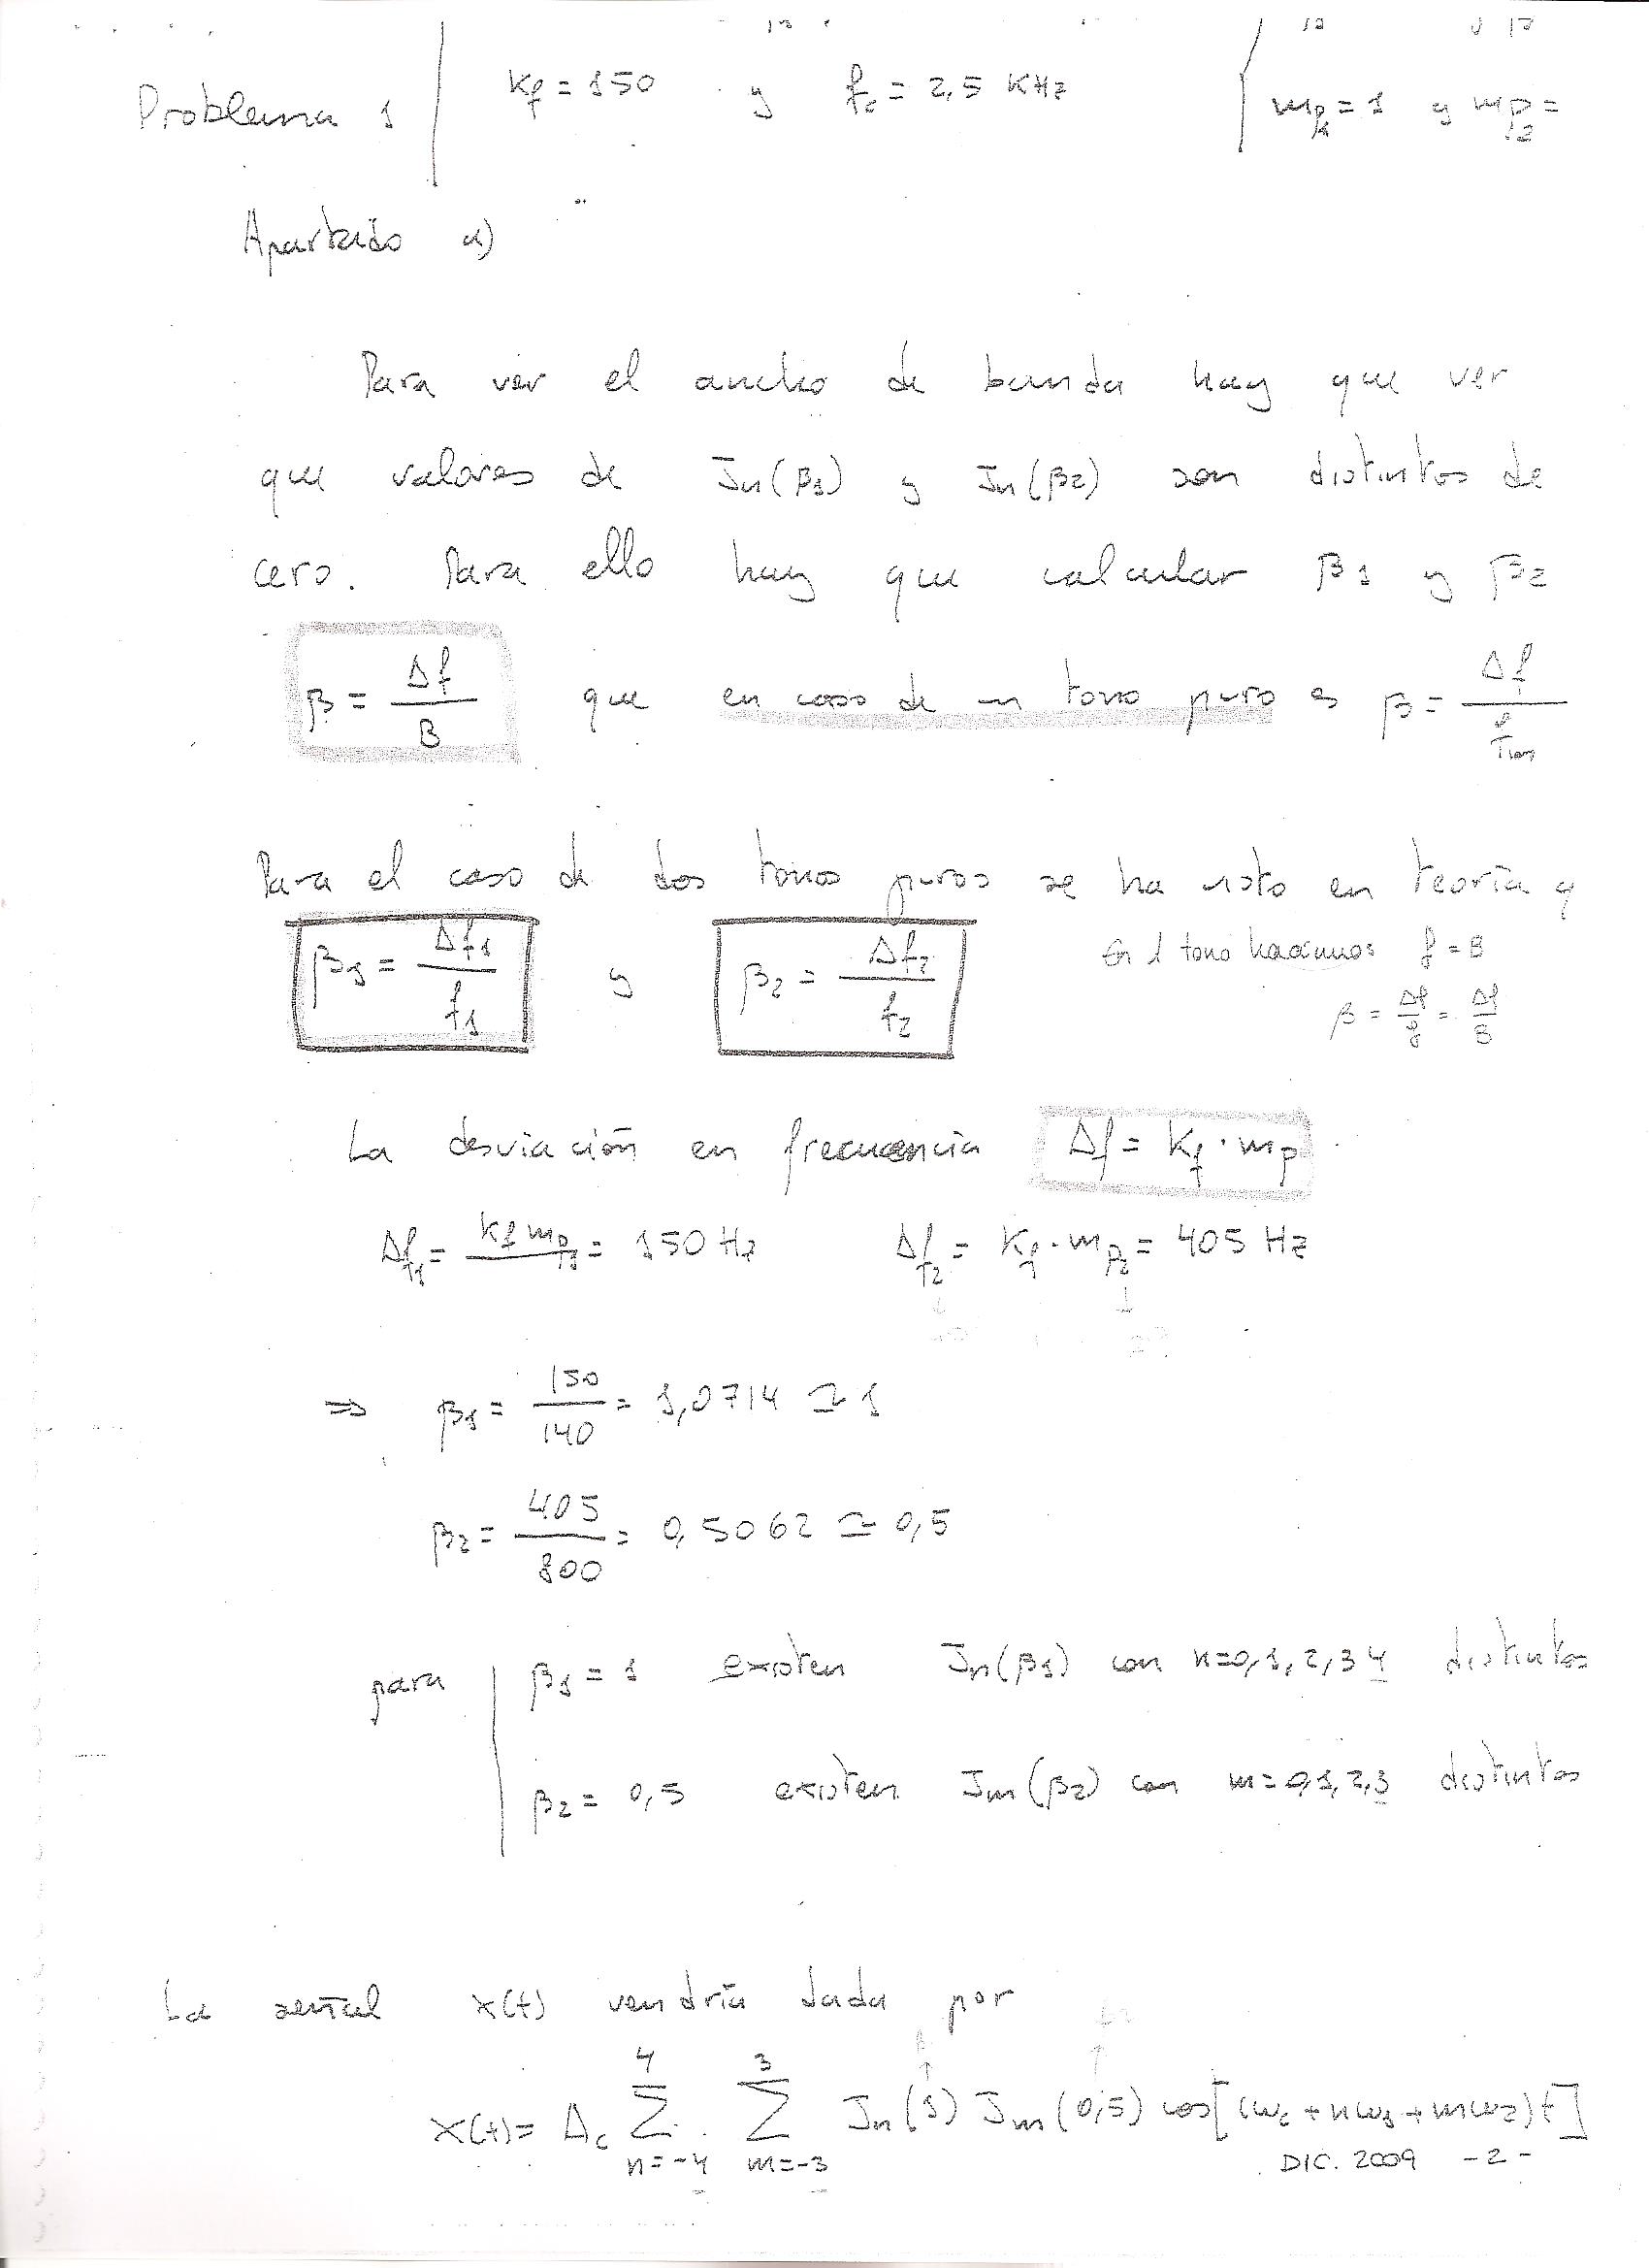 Problema 1 | Kf = 150 y fc = 2,5 KHz { mp1 = 1 y mp2 =
Apartado a)
Para ver el ancho de banda hay que ver
que valores de Jn(β1) y Jn(β2) son distintos de
cero. Para ello hay que calcular β1 y β2
β = Δf / B que en caso de un tono puro es β = Δf / f
Para el caso de dos tonos puros se ha visto en teoría q
β1 = Δf1 / f1 y β2 = Δf2 / f2
En 1 tono hacíamos f = B
β = Δf / f = Δf / B
La desviación en frecuencia Δf = Kf · mp
Δf1 = Kf mp1 = 150 Hz Δf2 = Kf · mp2 = 405 Hz
⇒ β1 = 150 / 140 = 1,0714 ≃ 1
β2 = 405 / 800 = 0,5062 ≃ 0,5
para | β1 = 1 existen Jn(β1) con n=0,1,2,3 4 distintos
β2 = 0,5 existen Jm(β2) con m=0,1,2,3 distintos
La señal x(t) vendría dada por
x(t) = Ac Σ(n=-4, 4) · Σ(m=-3, 3) Jn(1) Jm(0,5) cos[(ωc + nω1 + mω2)t]
DIC. 2009 -2-